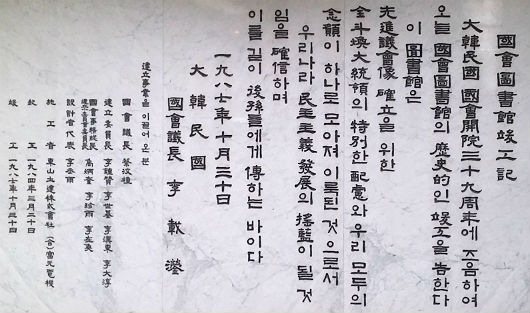 國會圖書館竣工記
大韓民國 國會開院 三十九周年에 즈음하여
오늘 國會圖書館의 歷史的인 竣工을 告한다
이 圖書館은
先進議會像 確立을 위한
全斗煥大統領의 特別한 配慮와 우리 모두의
念願이 하나로 모아져 이룩된 것으로서
우리나라 民主主義 發展의 搖籃이 될 것
임을 確信하며
이를 길이 後孫들에게 傳하는 바이다
一九八七年 十月 三十日
大韓民國
國會議長 李載瀅
建立事業을 이끌어 온 분
國會議長 蔡汶植
建立委員長 李鍾贊 李世基 李漢東 李大淳
國會事務總長 李珍雨
設計者代表 李承雨
施工者 東山土建株式會社 (合)富元電機
起工 一九八四年 三月 二十日
竣工 一九八七年 十月 三十日